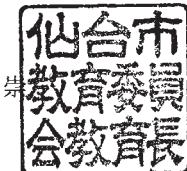 仙台市
教育委員
会教育長
崇